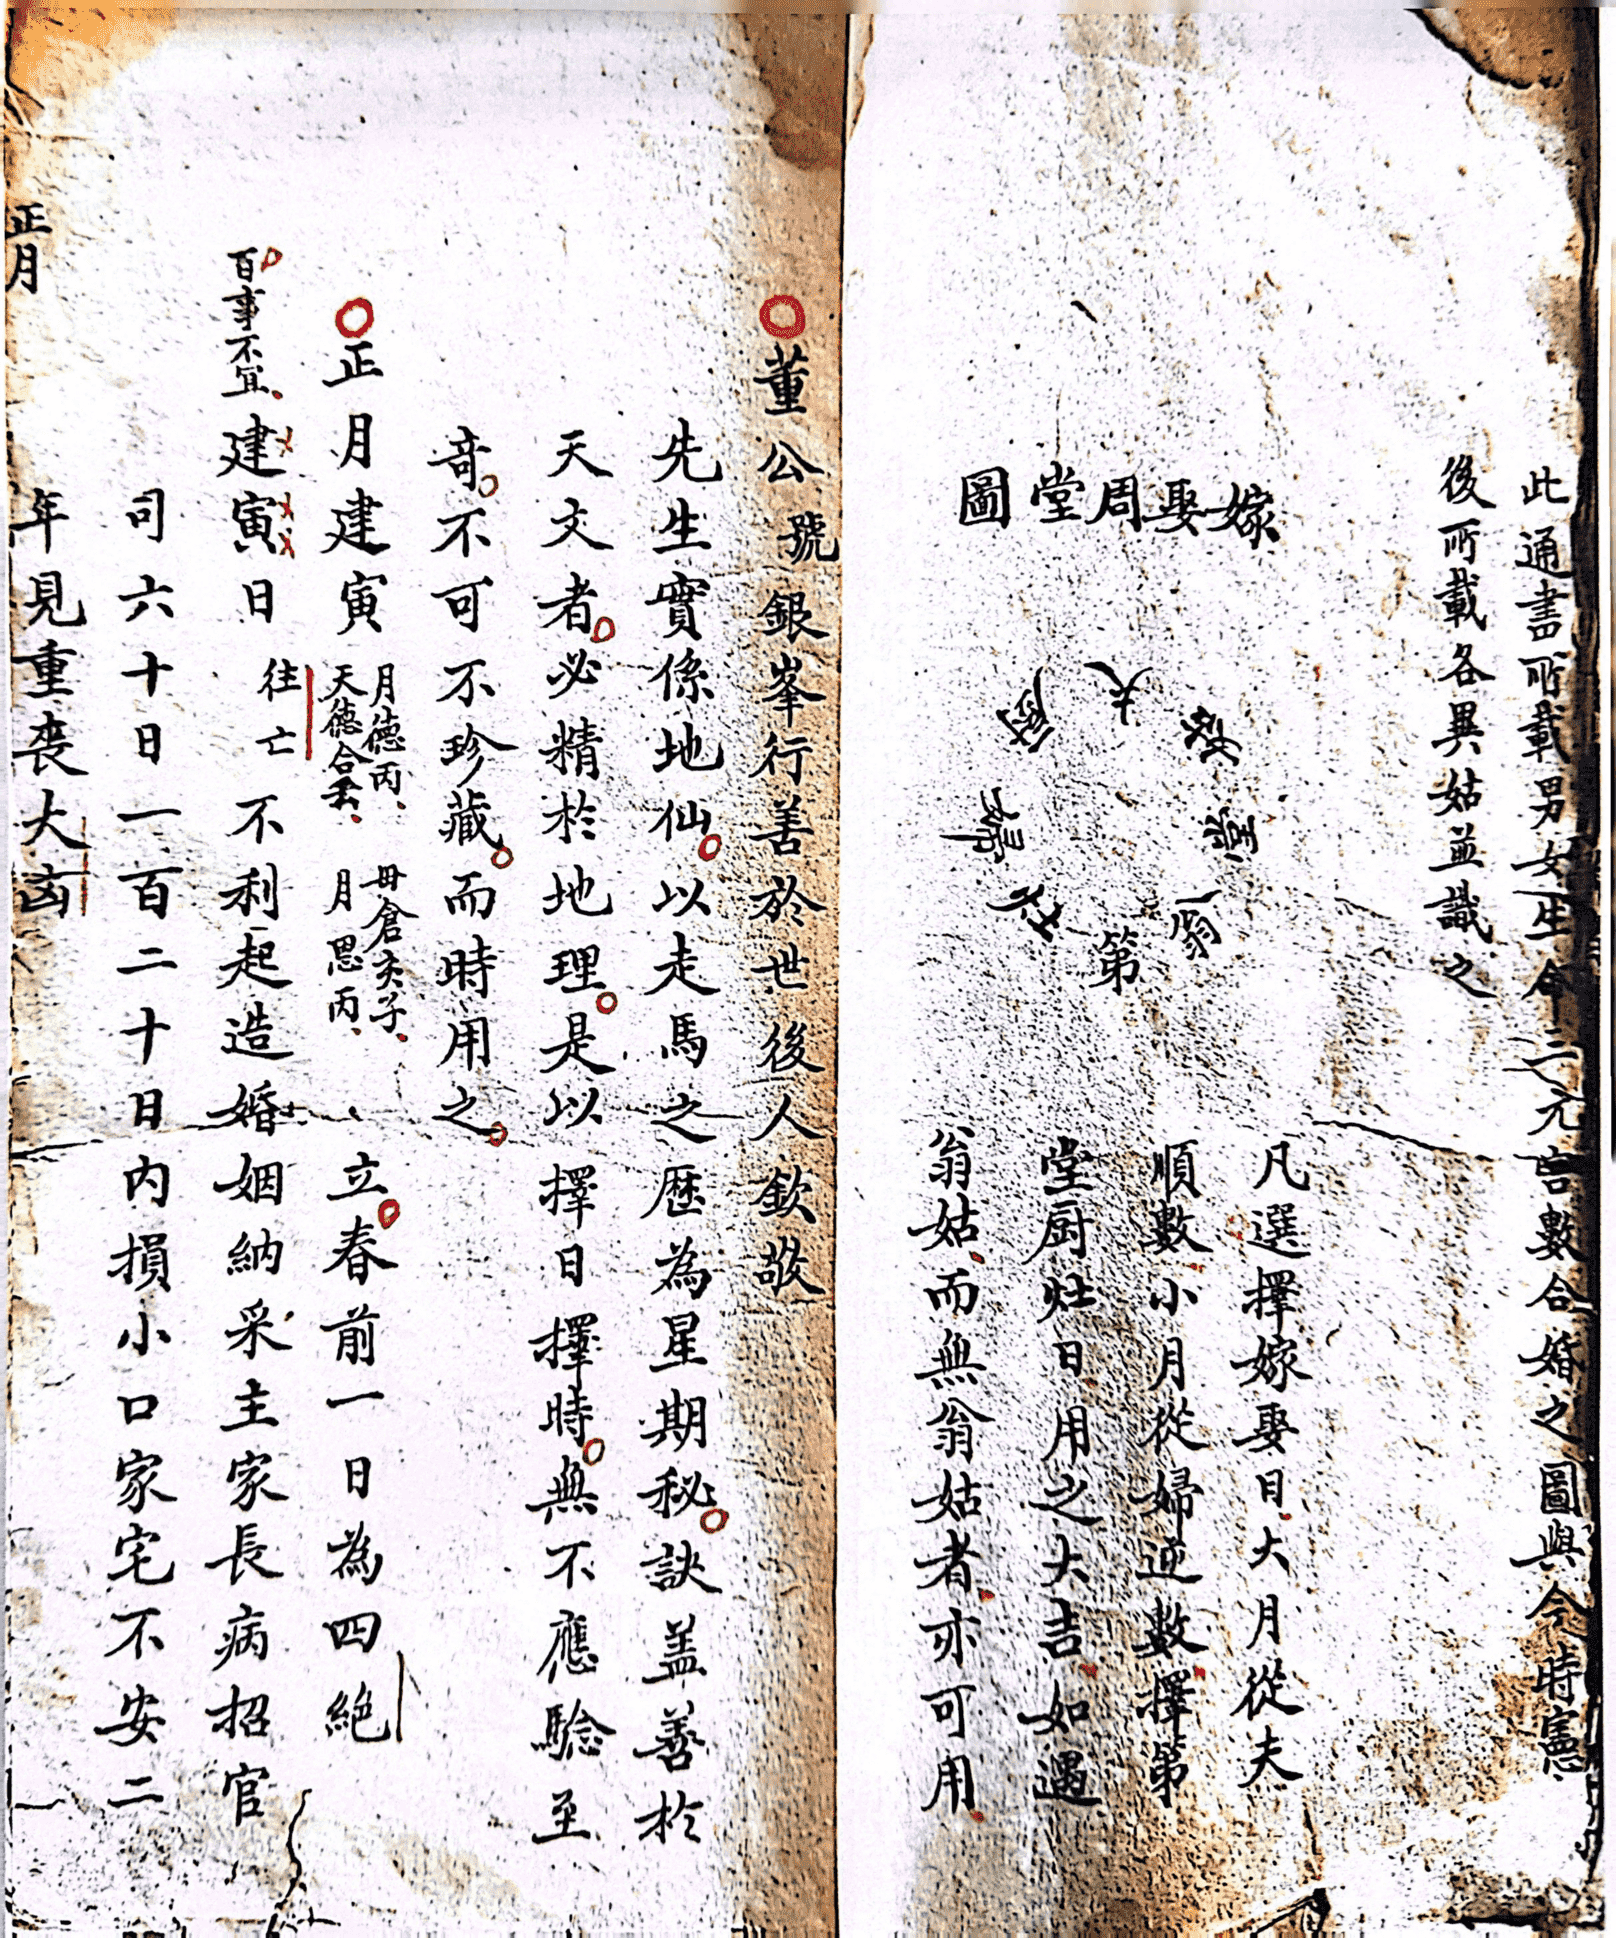 此通書所載男女生命三元吉數合婚之圖與今時憲
後所載各異姑並識之
嫁娶周堂圖
夫
姑
堂
翁
第
灶
婦
廚
凡選擇嫁娶日大月從夫
順數小月從婦逆數擇第
堂厨灶日用之大吉如遇
翁姑而無翁姑者亦可用
董公號銀峯行善於世後人欽敬
先生實係地仙以走馬之歷為星期秘訣盖善於
天文者必精於地理是以擇日擇時無不應驗至
竒不可不珍藏而時用之
正月建寅 月德丙 天德合壬 母倉亥子 月恩丙 立春前一日為四絕
百事不宜
建寅日 往亡 不利起造婚姻納采主家長病招官
司六十日一百二十日內損小口家宅不安二
年見重喪大凶
正月